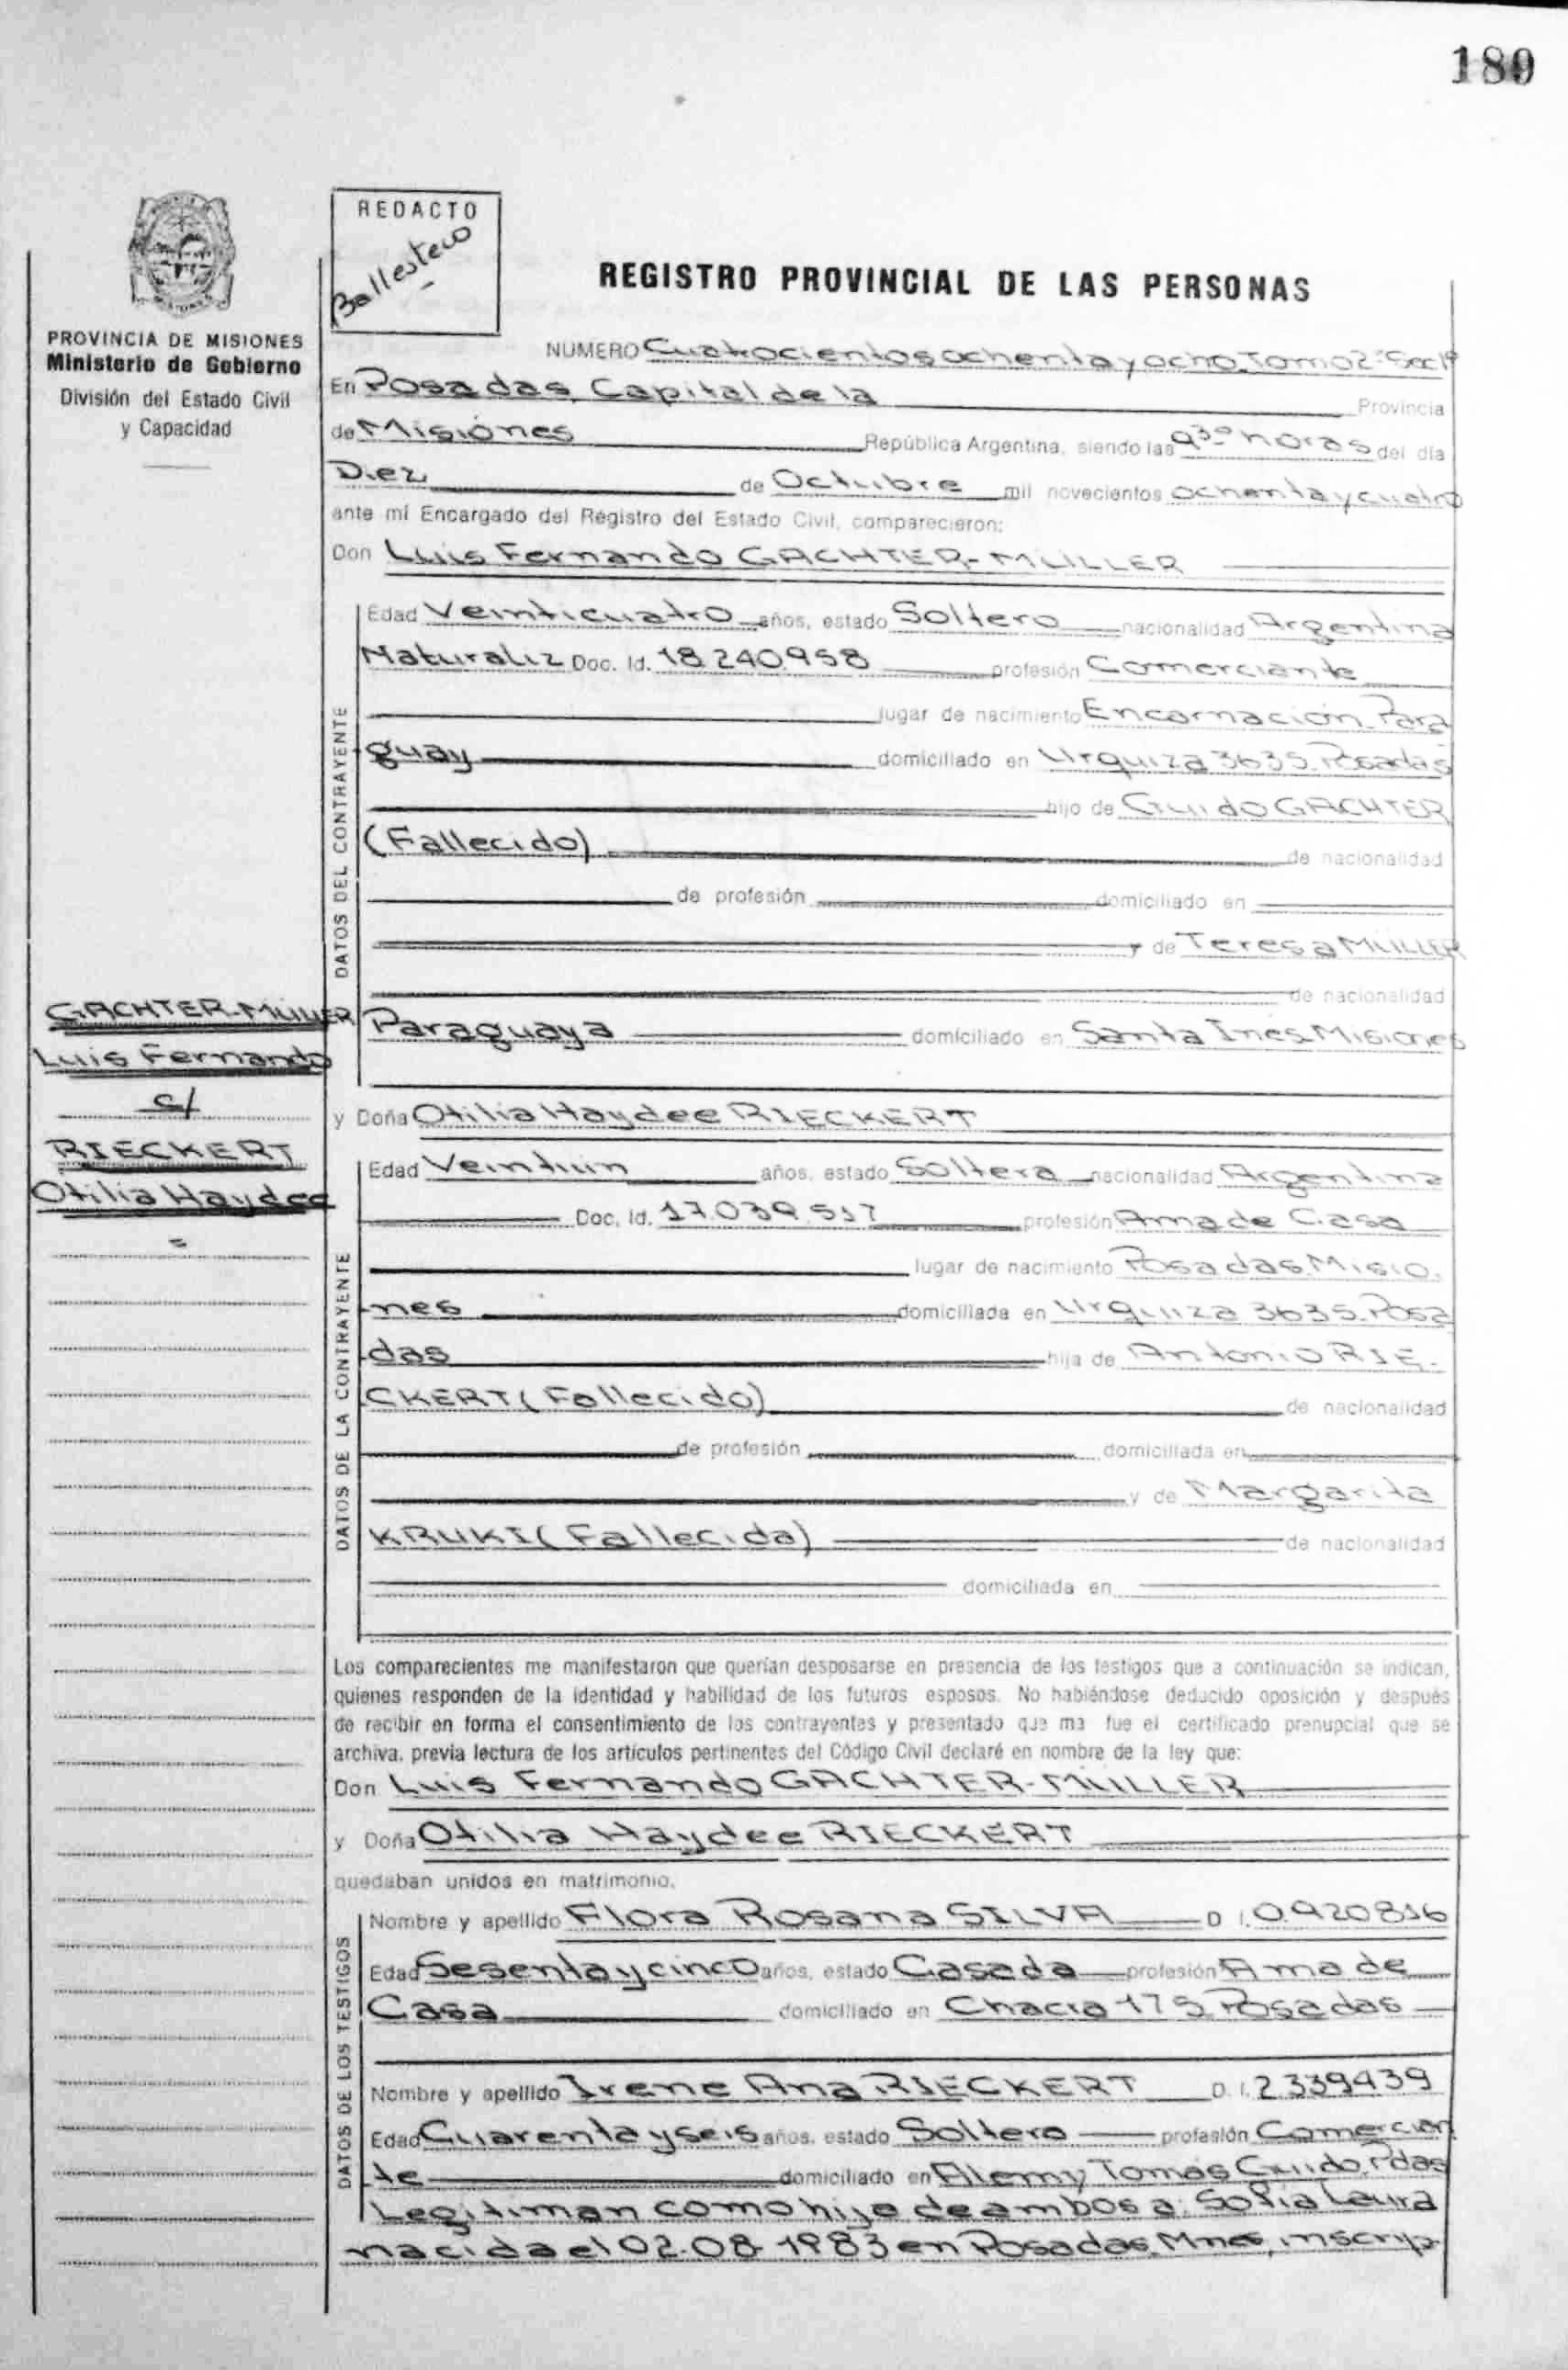 180
REDACTO
Ballestero
REGISTRO PROVINCIAL DE LAS PERSONAS
PROVINCIA DE MISIONES
Ministerio de Gobierno
División del Estado Civil
y Capacidad
NUMERO Cuatrocientos ochenta y ocho. Tomo 2º Secc 1ª
En Posadas, Capital de la Provincia
de Misiones República Argentina, siendo las 9 30 horas del día
Diez de Octubre mil novecientos ochenta y cuatro
ante mí Encargado del Registro del Estado Civil, comparecieron:
Don Luis Fernando GACHTER-MULLER
DATOS DEL CONTRAYENTE
Edad Veinticuatro años, estado Soltero nacionalidad Argentina
Naturaliz Doc. Id. 18.240.958 profesión Comerciante
lugar de nacimiento Encarnación-Para
guay domiciliado en Urquiza 3635. Posadas
hijo de Guido GACHTER
(Fallecido) de nacionalidad
de profesión domiciliado en
y de Teresa MULLER
de nacionalidad
Paraguaya domiciliado en Santa Ines Misiones
GACHTER-MULLER
Luis Fernando
c/
RIECKERT
Otilia Haydee
=
y Doña Otilia Haydee RIECKERT
DATOS DE LA CONTRAYENTE
Edad Veintiun años, estado Soltera nacionalidad Argentina
Doc. Id. 17.039.517 profesión Ama de Casa
lugar de nacimiento Posadas. Misio.
nes domiciliada en Urquiza 3635. Posa
das hija de Antonio RIE-
CKERT (Fallecido) de nacionalidad
de profesión domiciliada en
y de Margarita
KRUKI (Fallecida) de nacionalidad
domiciliada en
Los comparecientes me manifestaron que querían desposarse en presencia de los testigos que a continuación se indican,
quienes responden de la identidad y habilidad de los futuros esposos. No habiéndose deducido oposición y después
de recibir en forma el consentimiento de los contrayentes y presentado que me fue el certificado prenupcial que se
archiva, previa lectura de los artículos pertinentes del Código Civil declaré en nombre de la ley que:
Don Luis Fernando GACHTER-MULLER
y Doña Otilia Haydee RIECKERT
quedaban unidos en matrimonio.
DATOS DE LOS TESTIGOS
Nombre y apellido Flora Rosana SILVA D.I. 0.920816
Edad Sesenta y cinco años, estado Casada profesión Ama de
Casa domiciliado en Chacra 175 Posadas
Nombre y apellido Irene Ana RIECKERT D.I. 2339439
Edad Cuarenta y seis años, estado Soltera profesión Comercian
te domiciliado en Alem y Tomas Guido. Pdas
Legitiman como hijo de ambos a: Sofia Laura
nacida el 02-08-1983 en Posadas, Mnes, inscrip-